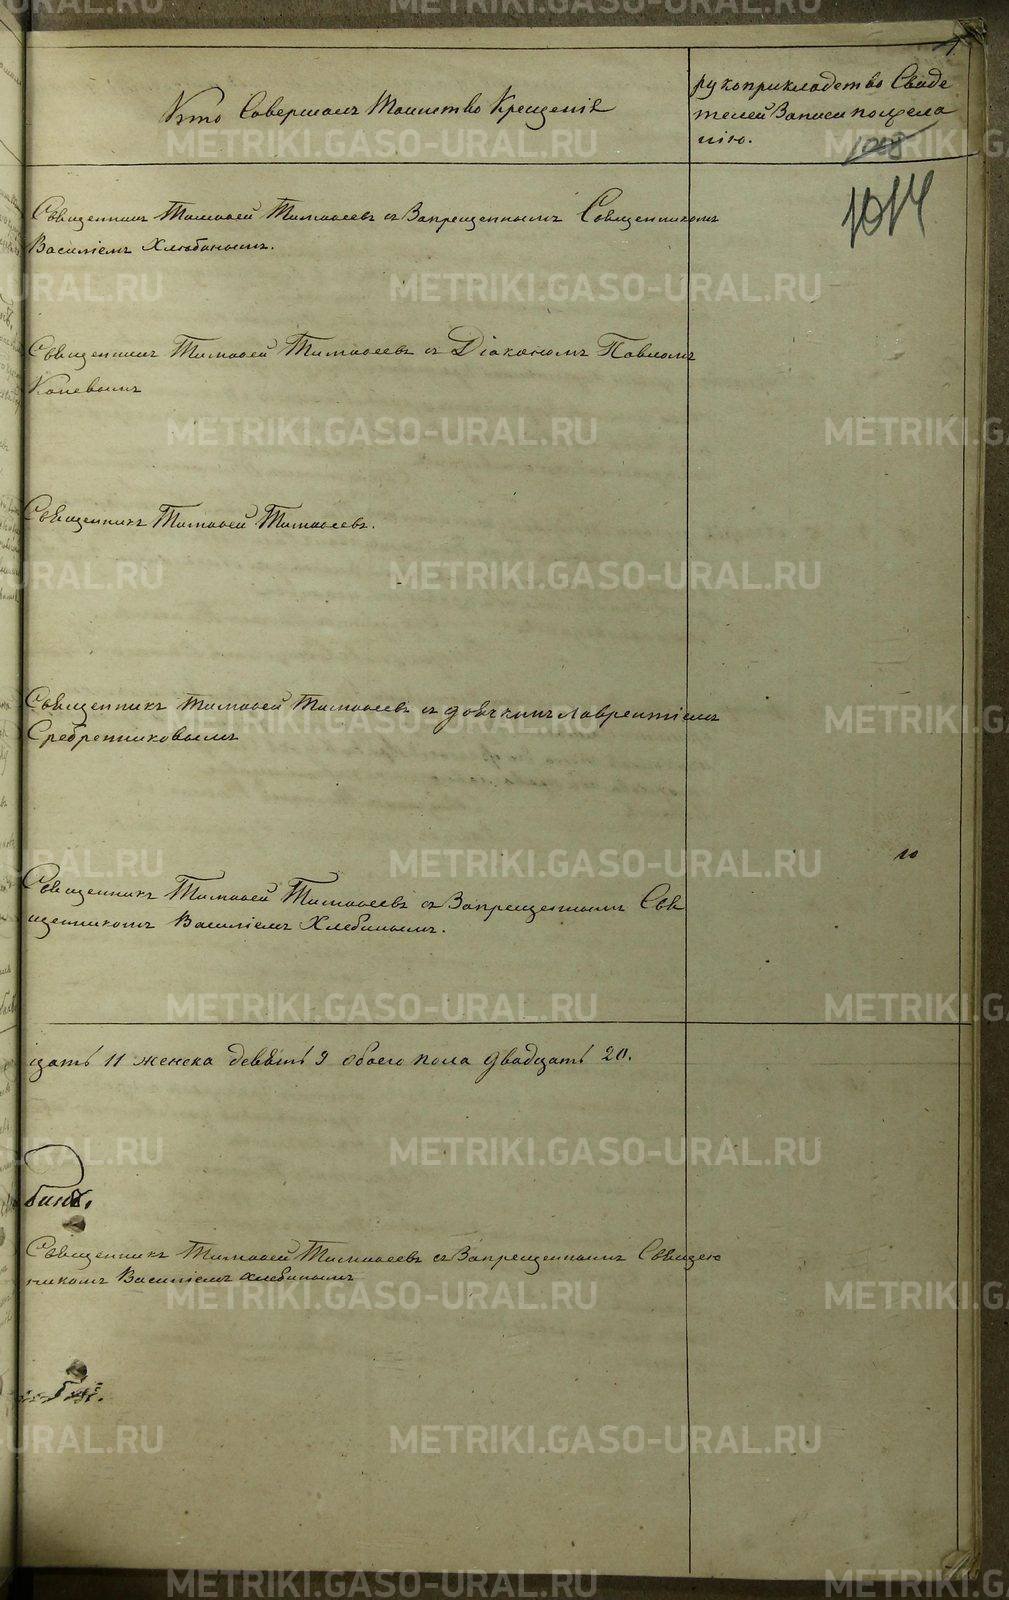 Кто Совершалъ Таинство Крещенія
рукоприкладство Свиде
телей Записи по жела
нію.
1014
Священникъ Тимофей Тимофеевъ съ Запрещеннымъ Священникомъ
Василіемъ Хлюбинымъ.
Священникъ Тимофей Тимофеевъ съ Діакономъ Павломъ
Коневымъ
Священникъ Тимофей Тимофеевъ.
Священникъ Тимофей Тимофеевъ съ дьячкомъ Лаврентіемъ
Сребренниковымъ
Священникъ Тимофей Тимофеевъ съ Запрещеннымъ Свя
щенникомъ Василіемъ Хлебинымъ.
цать 11 женска девять 9 обоего пола двадцать 20.
бинъ.
Священникъ Тимофей Тимофеевъ съ Запрещеннымъ Священ
никомъ Василіемъ Хлебинымъ
METRIKI.GASO-URAL.RU